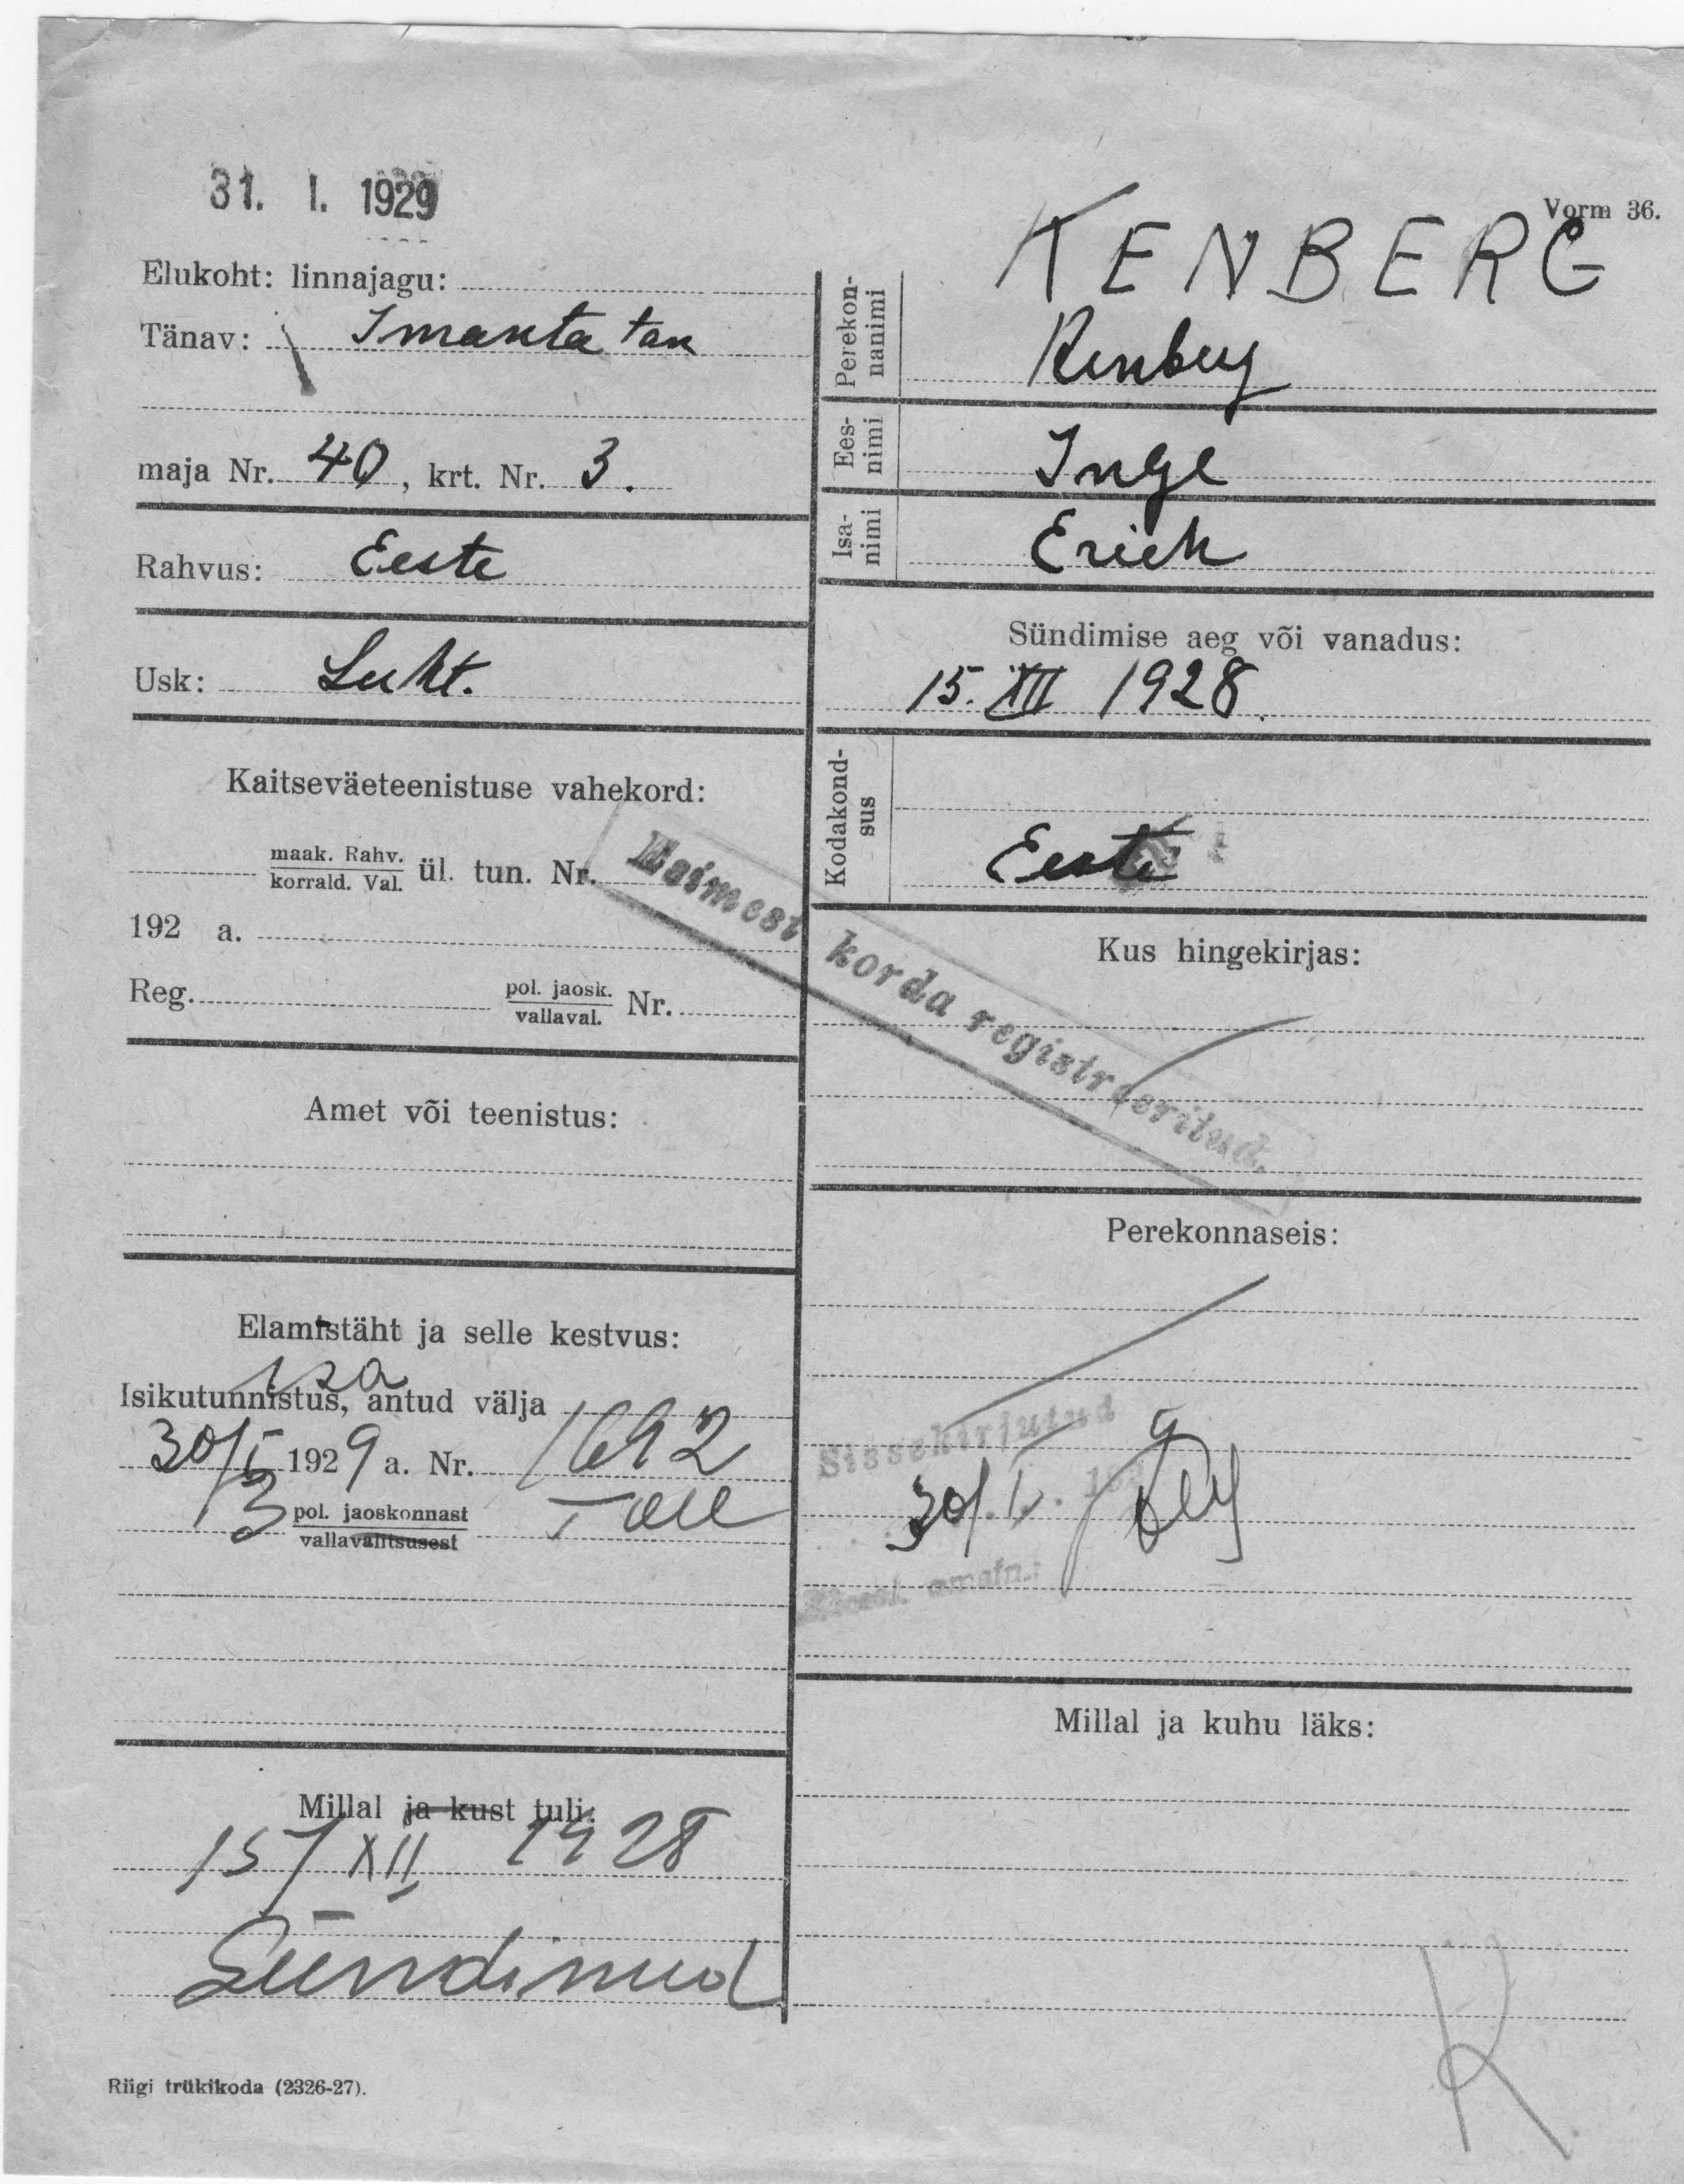 31. I. 1929
Vorm 36.
Elukoht: linnajagu:
Tänav: Imanta tan
maja Nr. 40, krt. Nr. 3.
Rahvus: Eeste
Usk: Luht.
Kaitseväeteenistuse vahekord:
maak. Rahv.
korrald. Val. ül. tun. Nr.
192 a.
Reg. pol. jaosk.
vallaval. Nr.
Amet või teenistus:
Elamistäht ja selle kestvus:
Isikutunnistus, antud välja
30/I 1929 a. Nr. 1692
3 pol. jaoskonnast
vallavalitsusest
Millal ja kust tuli:
15/XII 1928
Sündinud
Riigi trükikoda (2326-27).
KENBERG
Perekon-
nanimi Kenberg
Ees-
nimi Inge
Isa-
nimi Erich
Sündimise aeg või vanadus:
15. XII 1928.
Kodakond-
sus Eeste
Esimest korda registreeritud.
Kus hingekirjas:
Perekonnaseis:
Sissekirjutud
30/I.
Millal ja kuhu läks:
K